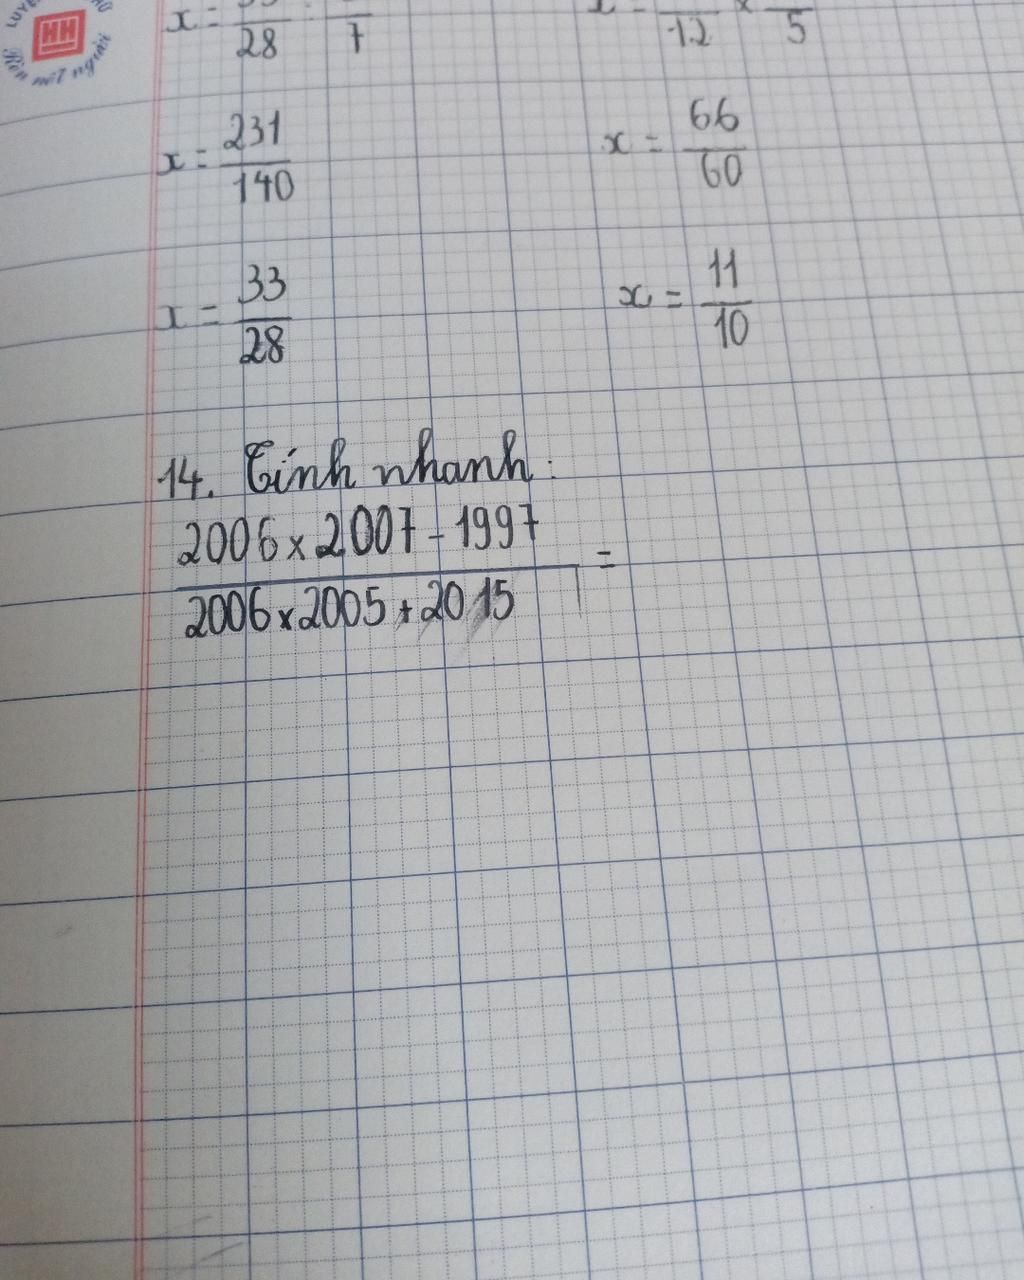 Rèn nết người
x = 28 : 7
x = 12 × 5
x = 231/140
x = 66/60
x = 33/28
x = 11/10
14. Tính nhanh:
2006 × 2007 - 1997
=
2006 × 2005 + 2015